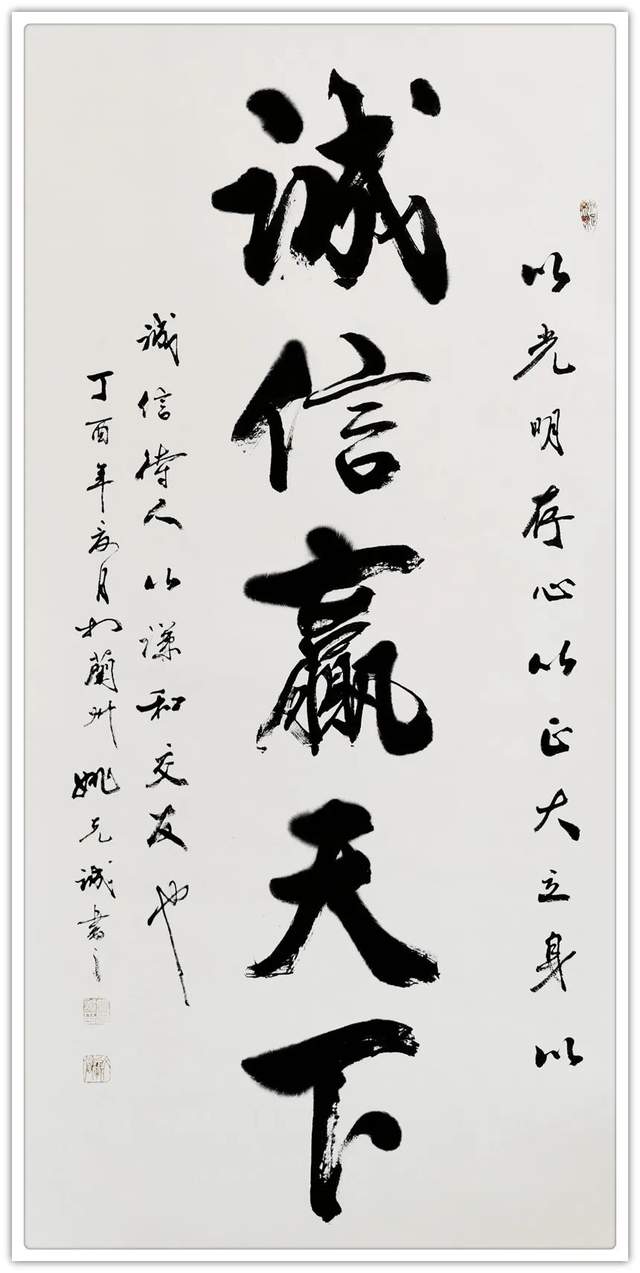 诚信赢天下
以光明存心以正大立身以
诚信待人以谦和交友也
丁酉年夏月於蘭州姚克诚書之